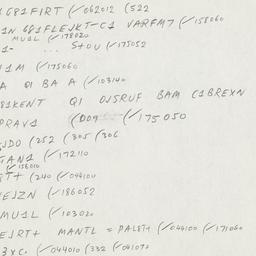 1G81FIRT (✓062012 (522
1N 681FLEJKT-C1 VARFM7 (✓158060
MU1L (✓178020
1- ... S+OU (✓175052
11M (✓175060
A O1 BA A (✓103140
81KENT Q1 OJSRUF BAM C1BREXN
PRAV1 (D09 (✓175050
JDO (252 (305 (306
GAN1 (✓172110
(✓158010
RT+ (240 (✓044100
EJZN (✓186052
MU1L (✓103020
EJRT+ MANTL = PALET+ (✓044100 (✓171060
3XC. (✓044010 (332 (✓041070